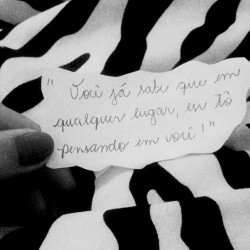 " Você já sabe que em
qualquer lugar, eu tô
pensando em você! "